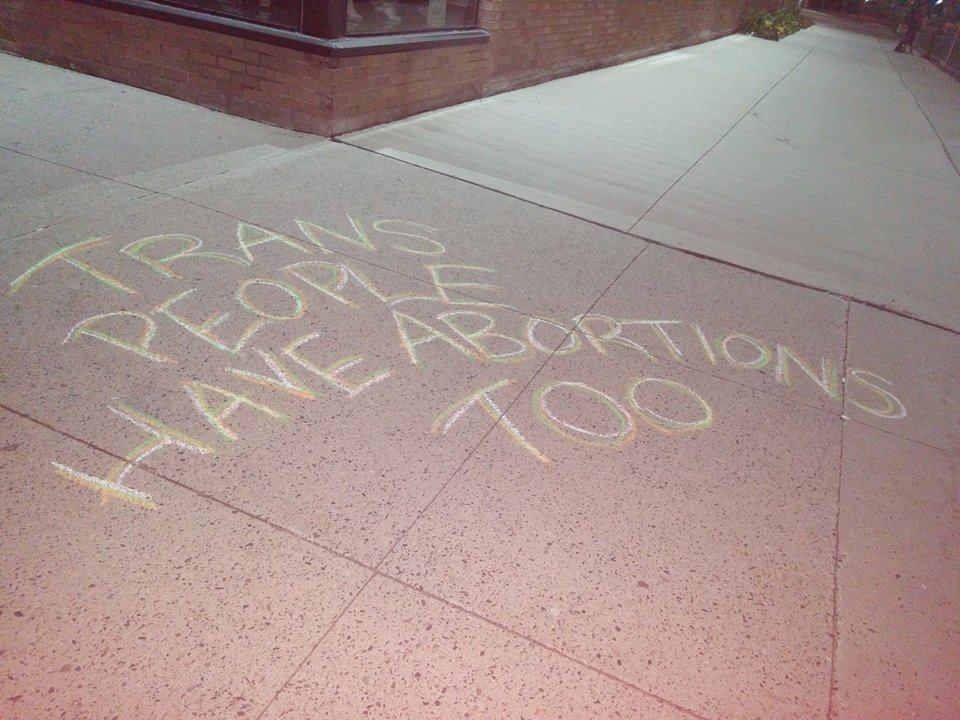 TRANS
PEOPLE
HAVE ABORTIONS
TOO